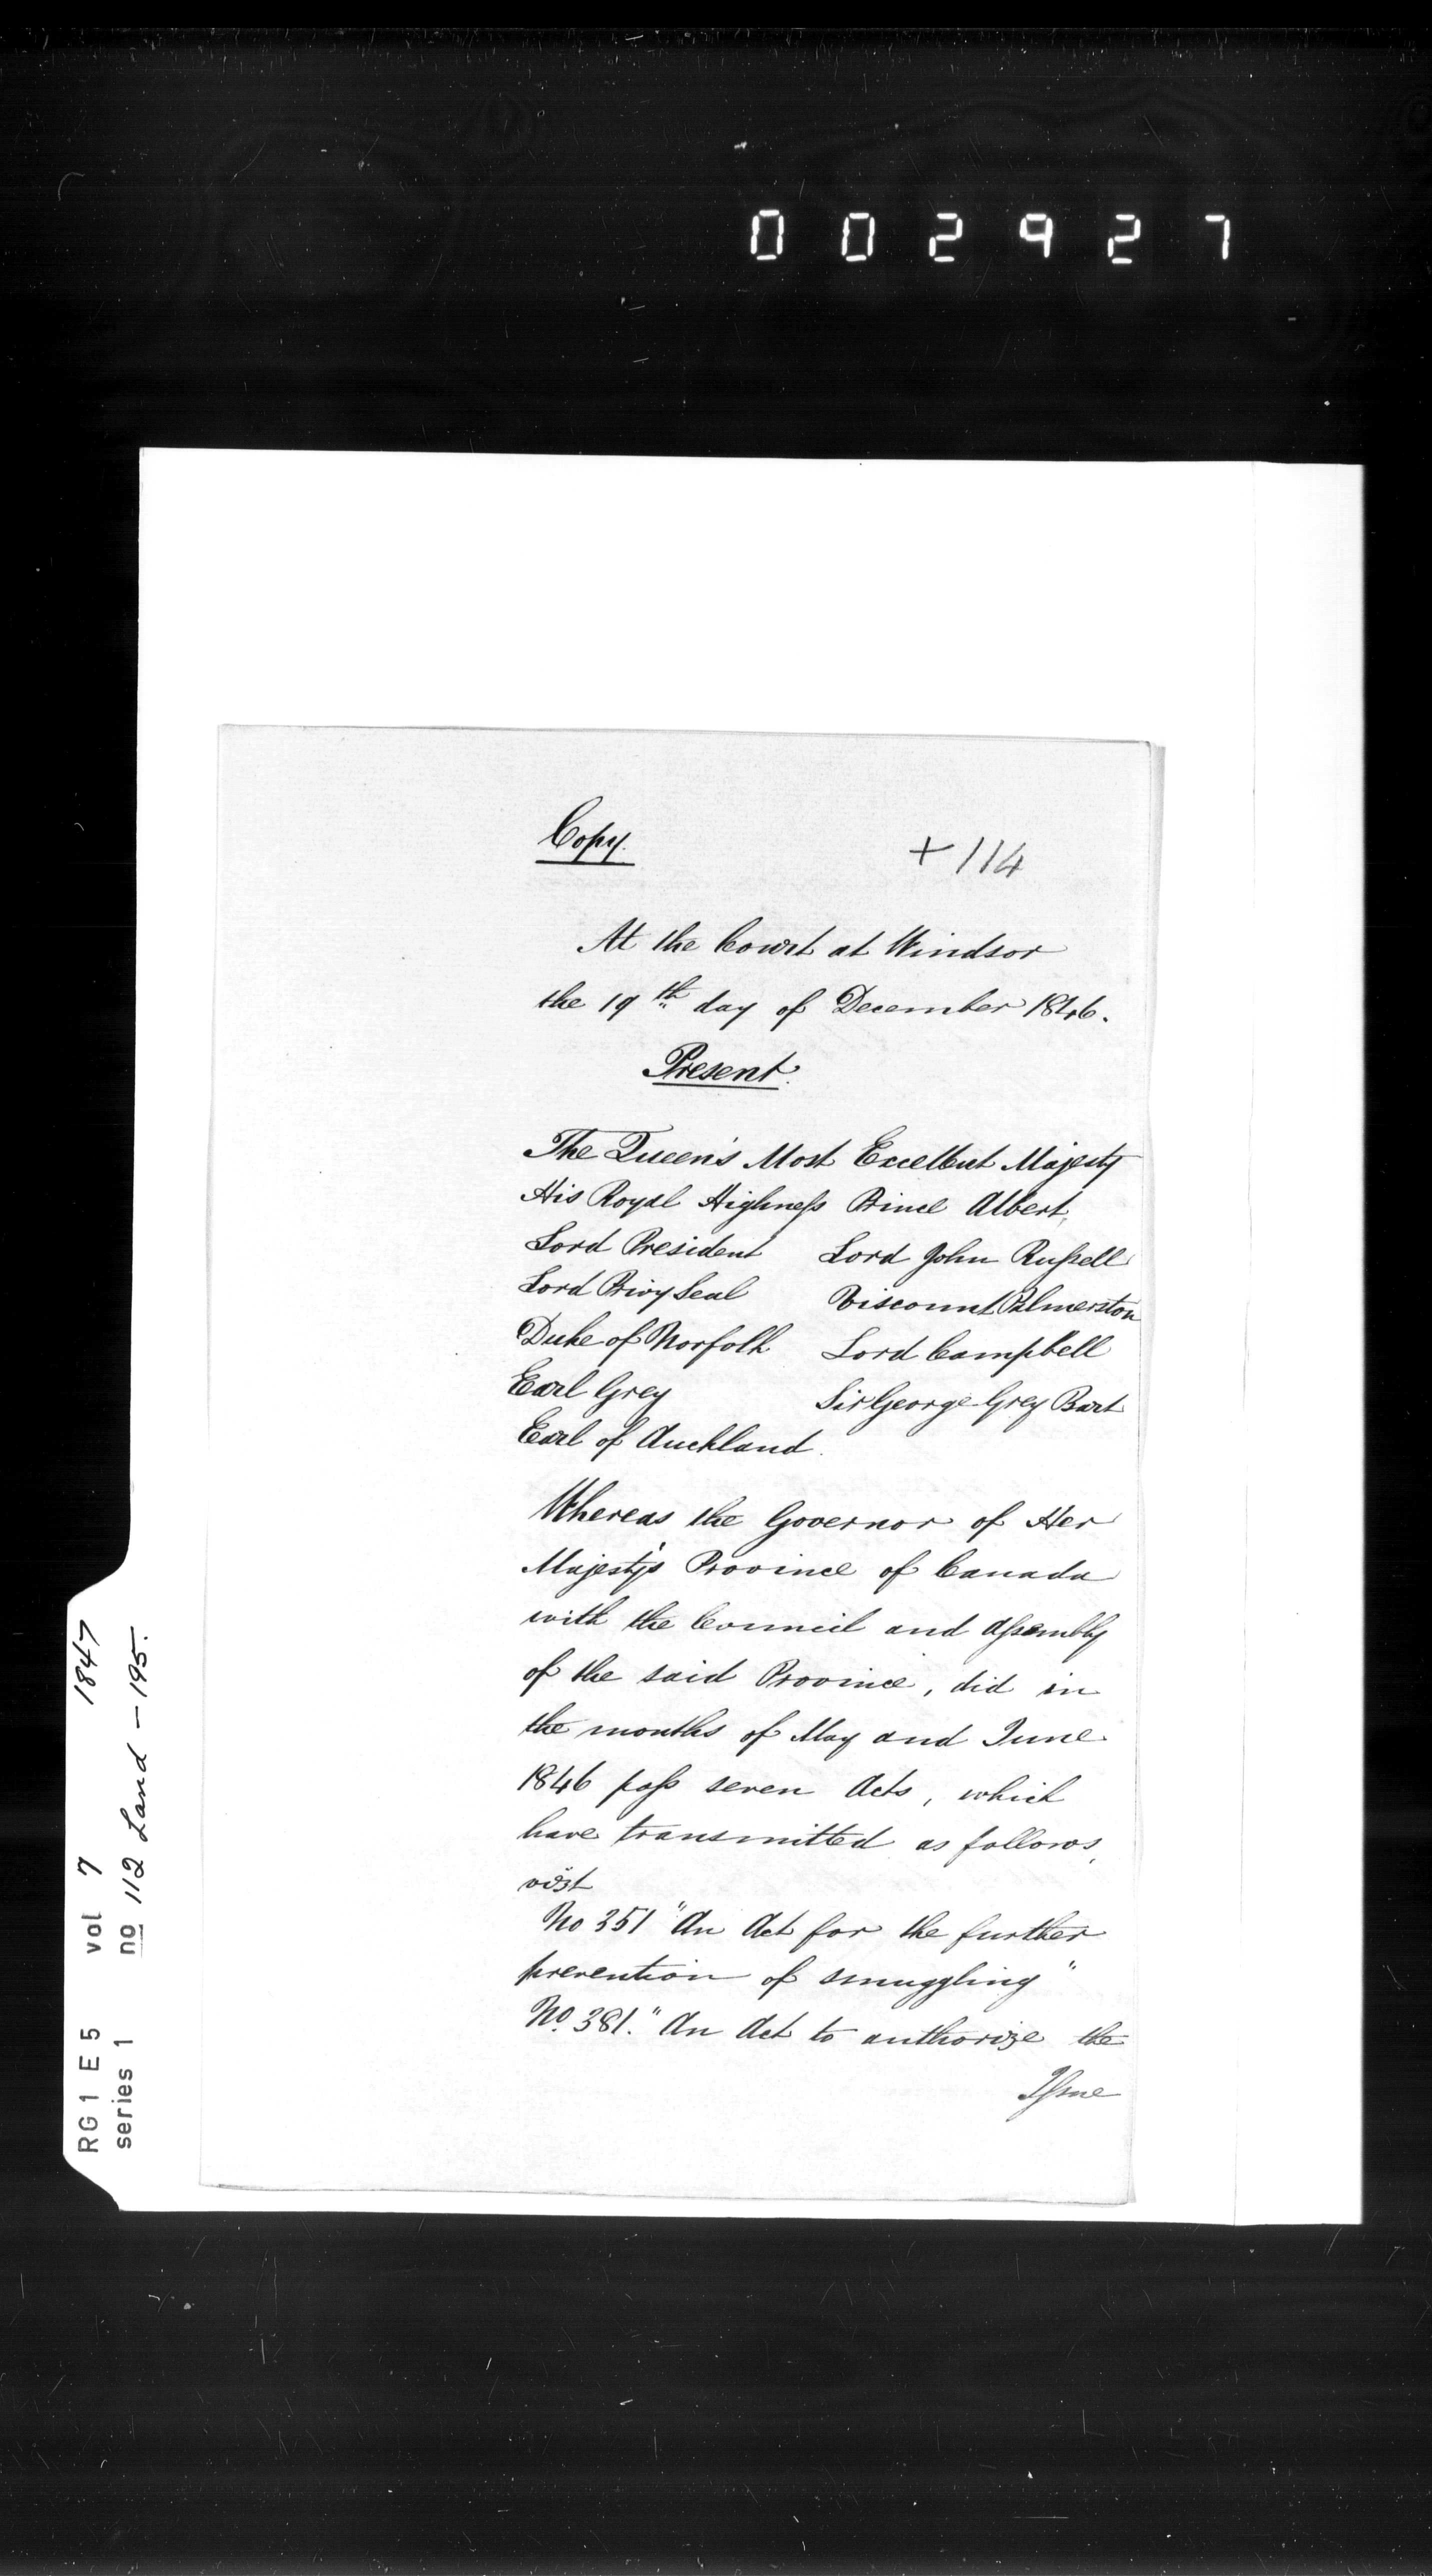 002927
Copy.
+ 114
At the Court at Windsor
the 19th day of December 1846.
Present.
The Queen's Most Excellent Majesty
His Royal Highness Prince Albert,
Lord President Lord John Russell
Lord Privy Seal Viscount Palmerston
Duke of Norfolk Lord Campbell
Earl Grey Sir George Grey Bart
Earl of Auckland.
Whereas the Governor of Her
Majesty's Province of Canada
with the Council and Assembly
of the said Province, did in
the months of May and June
1846 pass seven Acts, which
have transmitted as follows,
vizt
No 351 "An Act for the further
prevention of smuggling"
No. 381. "An Act to authorize the
Issue
RG1 E5 vol 7 1847
series 1 no 112 Land - 195.